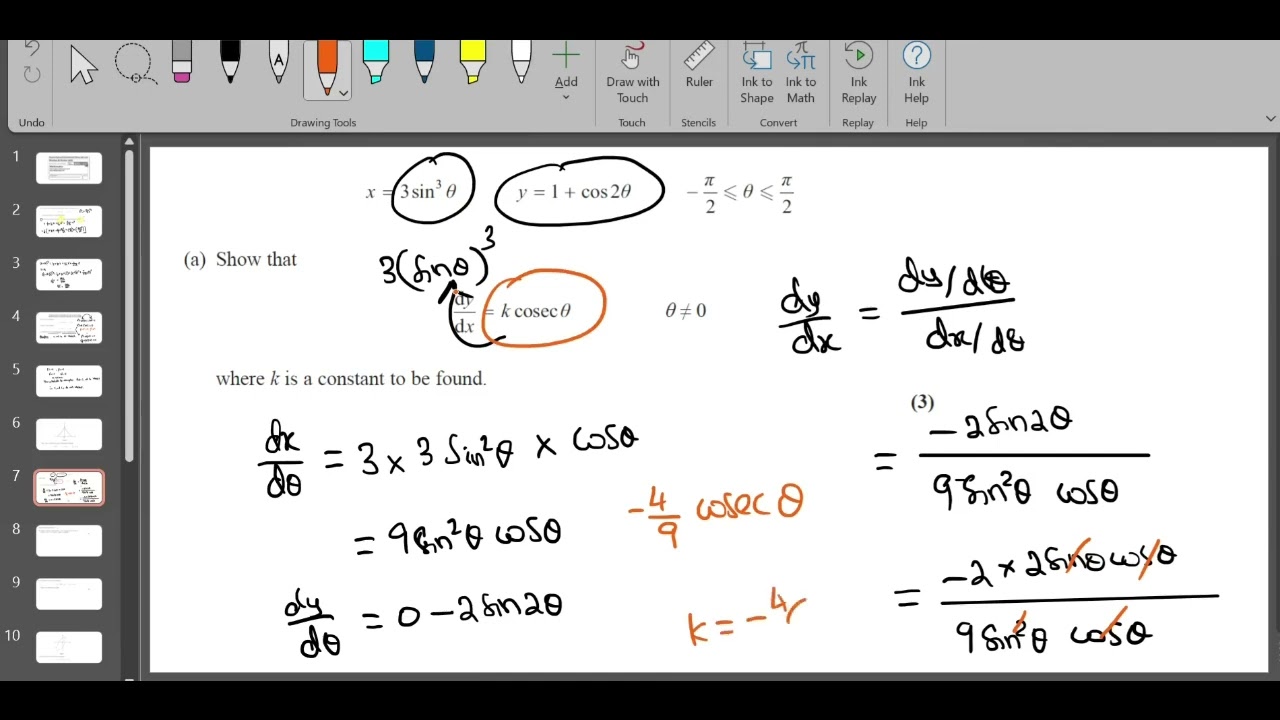 Undo
Drawing Tools
Add
Draw with Touch
Touch
Ruler
Stencils
Ink to Shape
Ink to Math
Convert
Ink Replay
Replay
Ink Help
Help
1
2
3
4
5
6
7
8
9
10
x = 3 sin³ θ y = 1 + cos 2θ −π/2 ⩽ θ ⩽ π/2
(a) Show that
3(sinθ)³
dy/dx = k cosec θ θ ≠ 0
dy/dx = (dy/dθ)/(dx/dθ)
where k is a constant to be found.
(3)
dx/dθ = 3 × 3 sin²θ × cosθ
= 9sin²θ cosθ
dy/dθ = 0 − 2sin2θ
= −2sin2θ/(9sin²θ cosθ)
= −2 × 2sinθcosθ/(9sin²θ cosθ)
−4/9 cosec θ
k = −4/